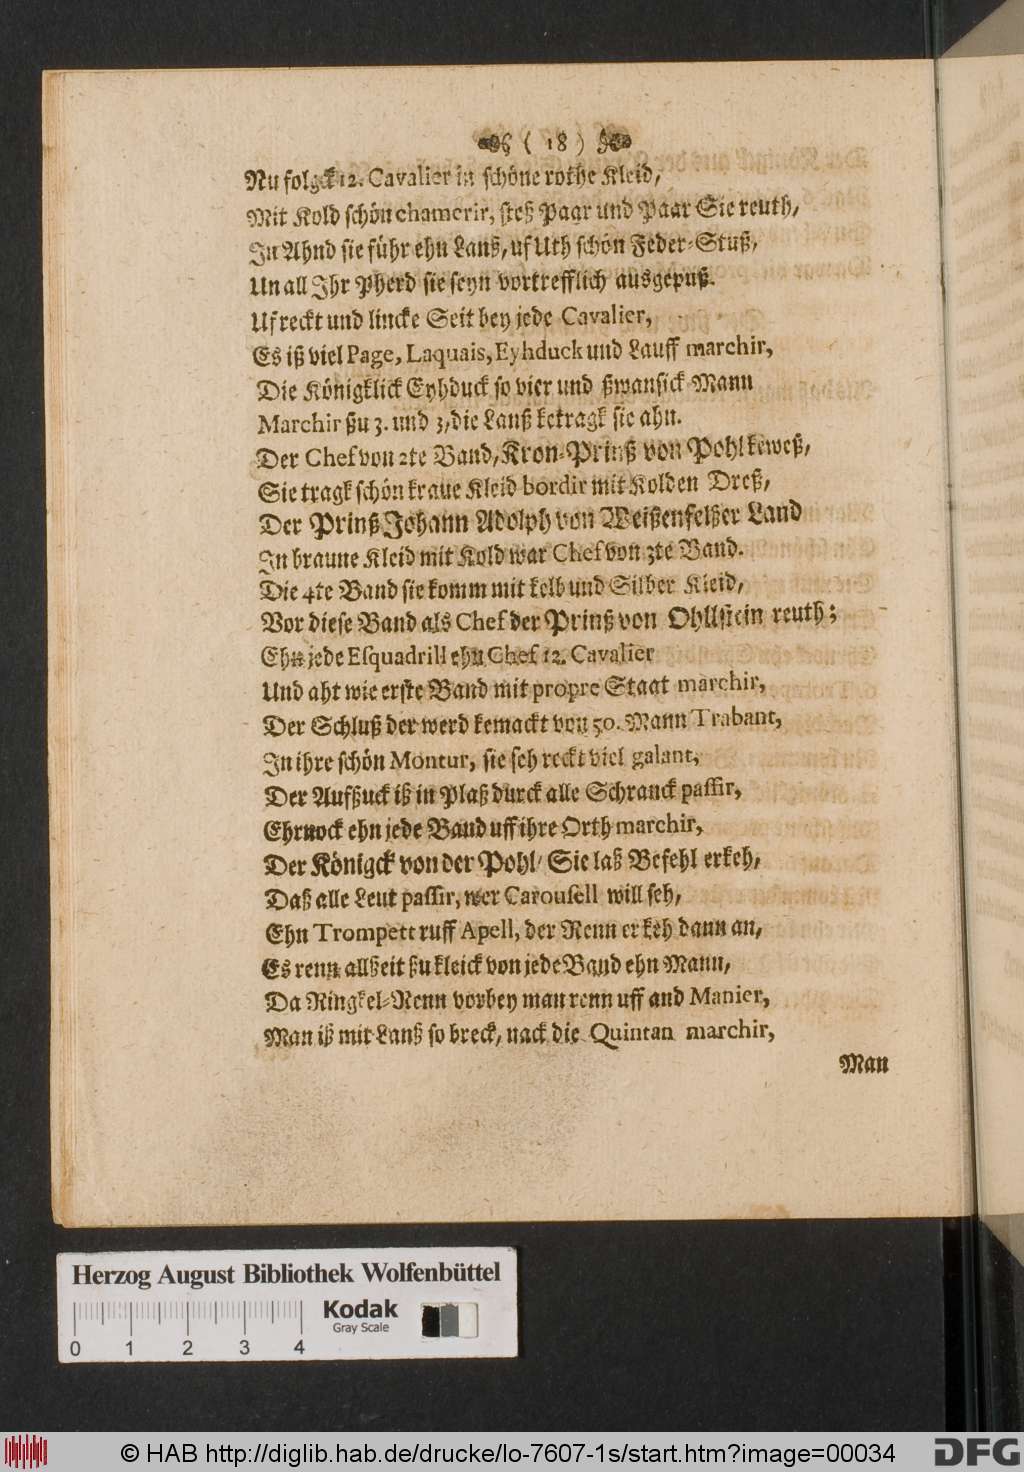 ( 18 )
Nu folgck 12. Cavalier in schöne rothe Kleid,
Mit Kold schön chamerir, steß Paar und Paar Sie reuth,
In Ahnd sie führ ehn Lanß, uf Uth schön Feder-Stuß,
Un all Ihr Pherd sie seyn vortrefflich ausgepuß.
Uf reckt und lincke Seit bey jede Cavalier,
Es iß viel Page, Laquais, Eyhduck und Lauff marchir,
Die Königklick Eyhduck so vier und ßwansick Mann
Marchir ßu 3. und 3, die Lanß ketragk sie ahn.
Der Chef von 2te Band, Kron-Prinß von Pohl keweß,
Sie tragk schön kraue Kleid bordir mit Kolden Dreß,
Der Prinß Johann Adolph von Weißenfelßer Land
In braune Kleid mit Kold war Chef von 3te Band.
Die 4te Band sie komm mit kelb und Silber Kleid,
Vor diese Band als Chef der Prinß von Ohllstein reuth;
Ehn jede Esquadrill ehn Chef 12. Cavalier
Und aht wie erste Band mit propre Staat marchir,
Der Schluß der werd kemackt von 50. Mann Trabant,
In ihre schön Montur, sie seh reckt viel galant,
Der Aufßuck iß in Plaß durck alle Schranck passir,
Ehrnock ehn jede Band uff ihre Orth marchir,
Der Königck von der Pohl/ Sie laß Befehl erkeh,
Daß alle Leut passir, wer Carousell will seh,
Ehn Trompett ruff Apell, der Renn erkeh dann an,
Es renn allßeit ßu kleick von jede Band ehn Mann,
Da Ringkel-Renn vorbey man renn uff and Manier,
Man iß mit Lanß so breck, nack die Quintan marchir,
Man
Herzog August Bibliothek Wolfenbüttel
Kodak
Gray Scale
0 1 2 3 4
© HAB http://diglib.hab.de/drucke/lo-7607-1s/start.htm?image=00034
DFG